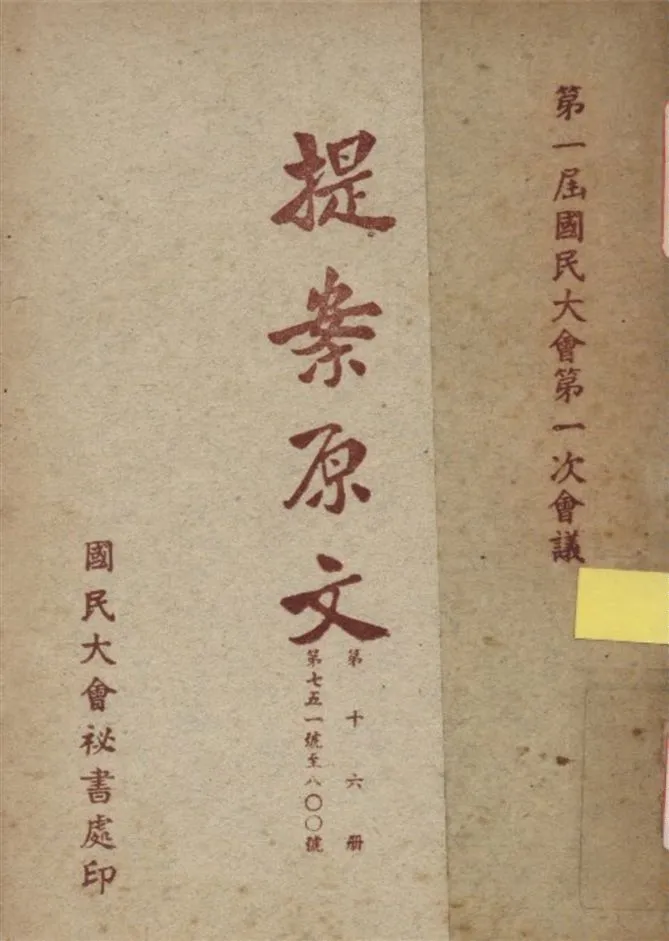 第一屆國民大會第一次會議
提案原文
第十六册
第七五一號至八〇〇號
國民大會祕書處印